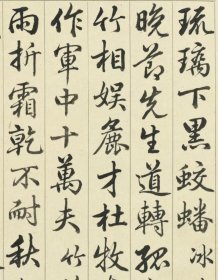 琉璃下黑蛟蟠冰
晚節先生道轉孤
竹相娛麄才杜牧
作軍中十萬夫竹
雨折霜乾不耐秋